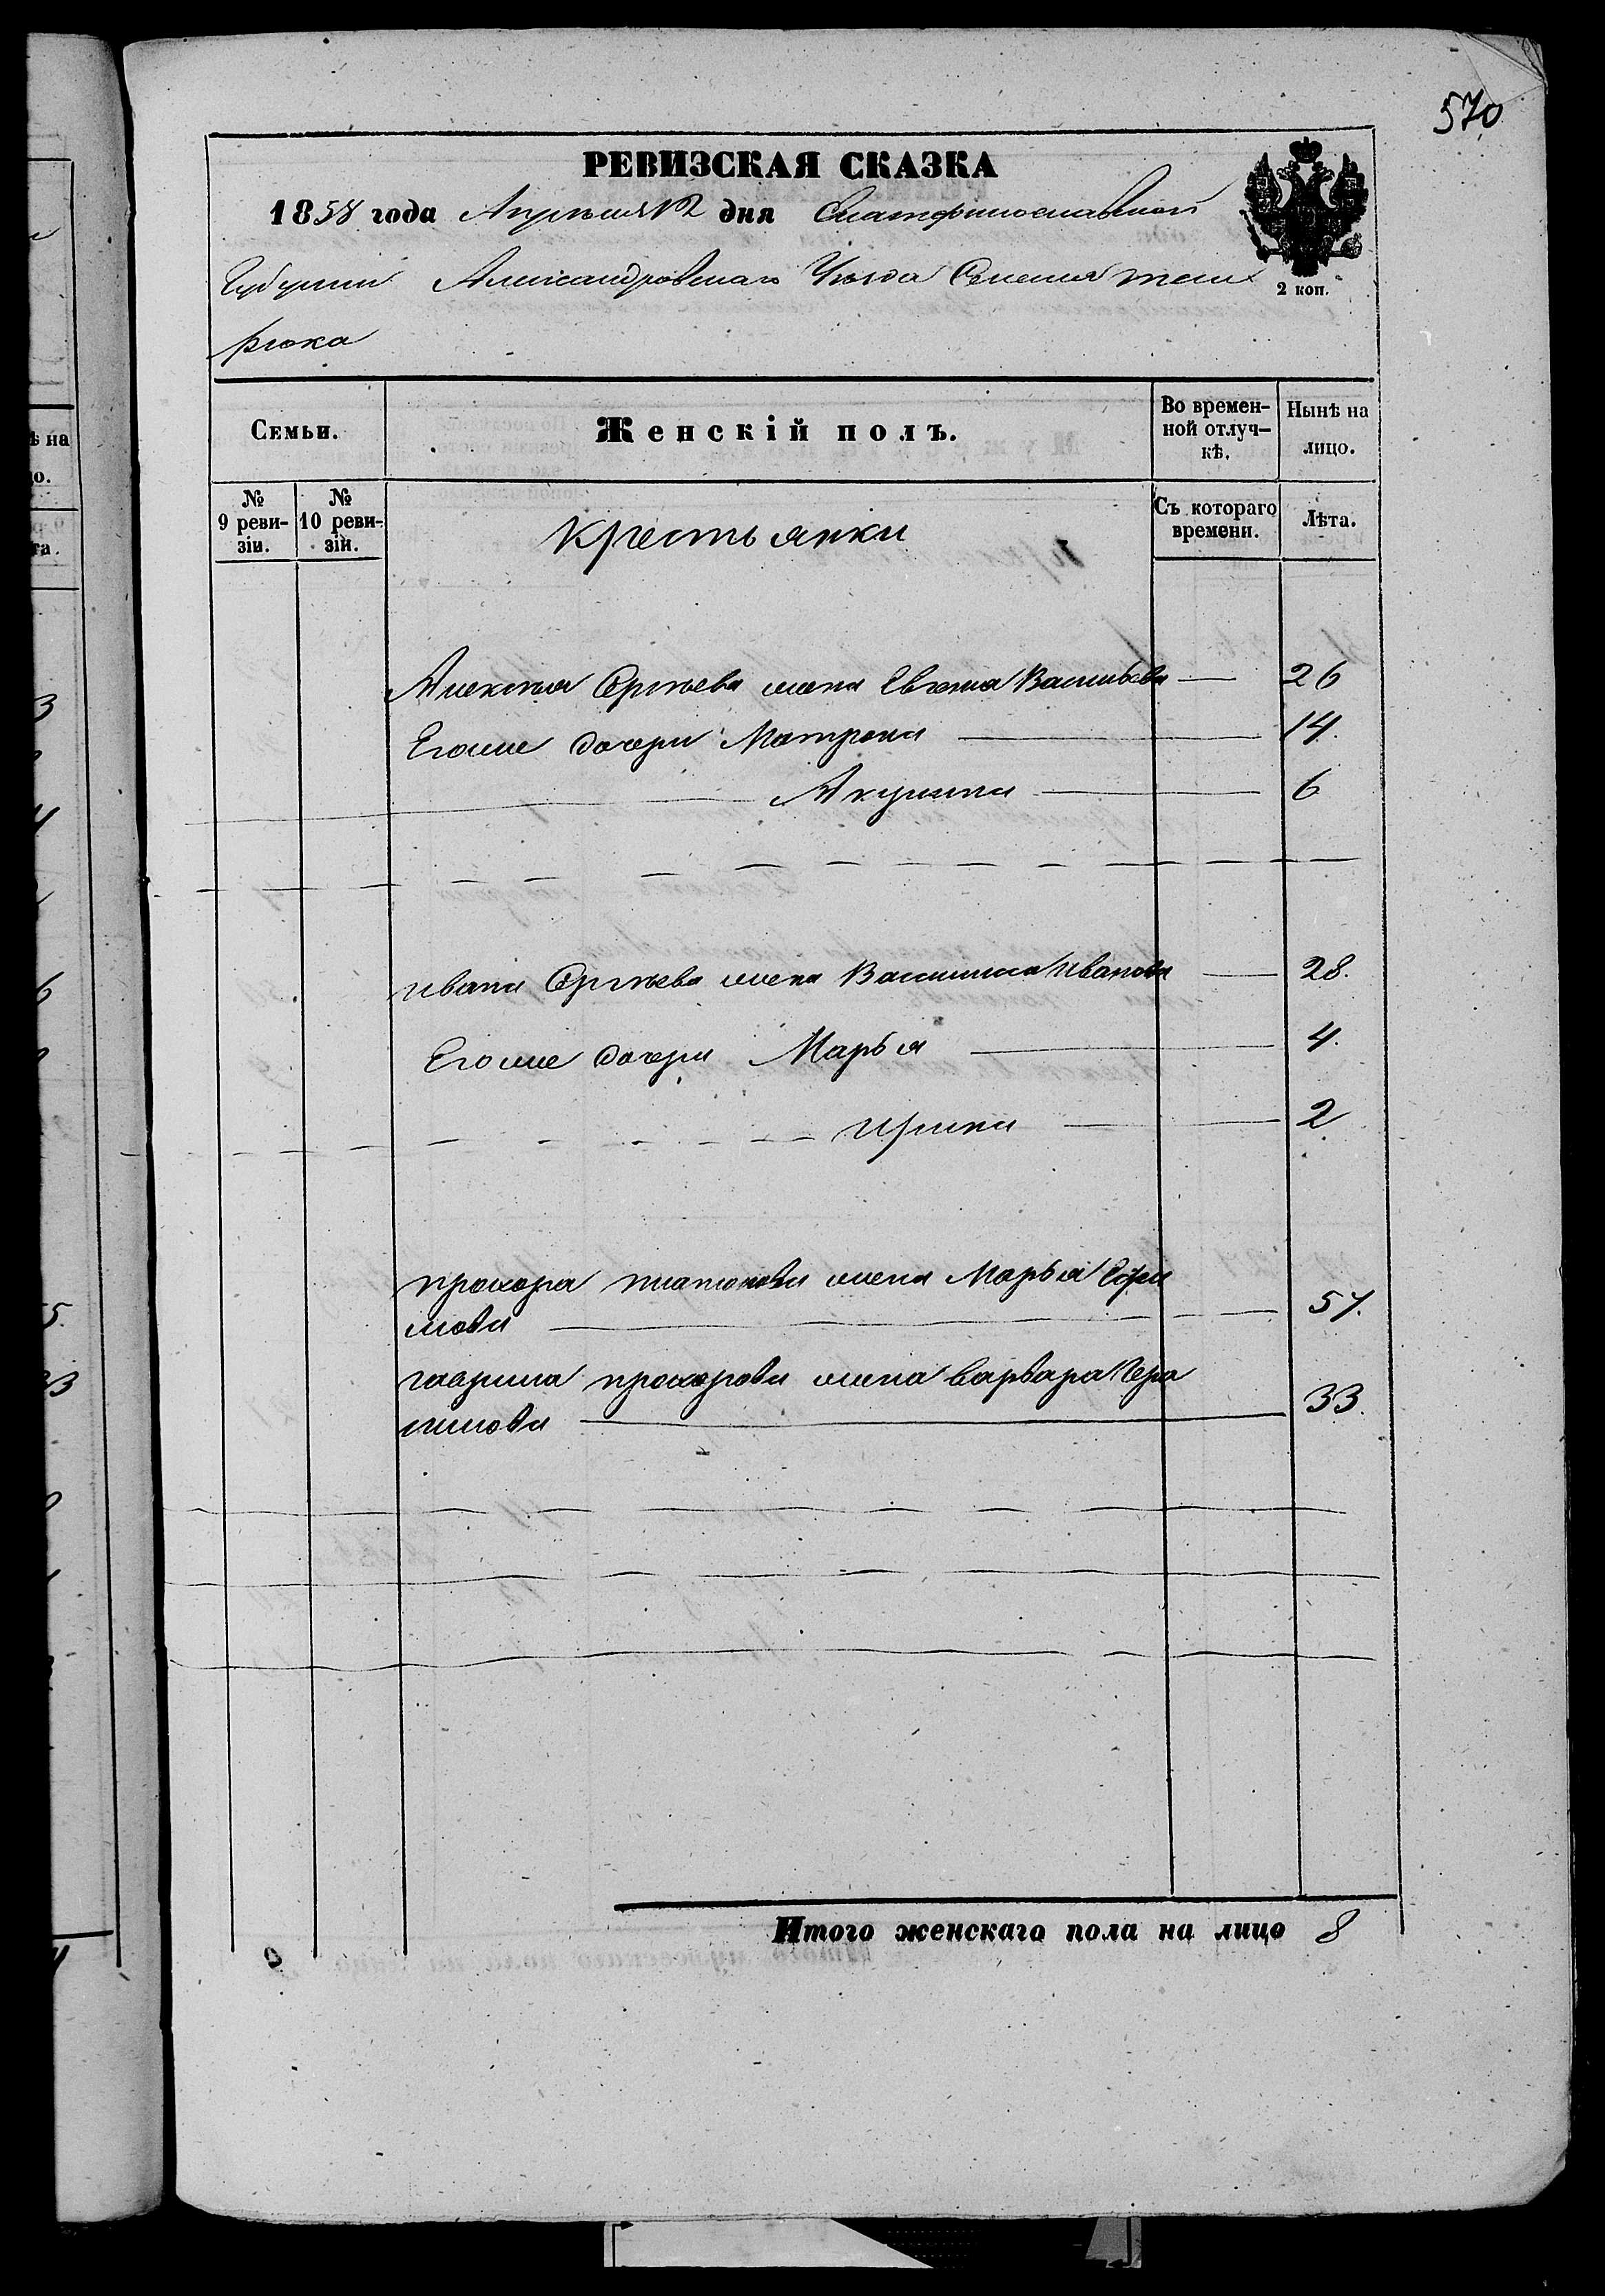 570
РЕВИЗСКАЯ СКАЗКА
1858 года Апреля 12 дня Екатеринославской
Губернии Александровскаго Уезда Селения Тем
рюка
2 коп.
Семьи.
Женскій полъ.
Во времен-
ной отлуч-
кѣ.
Нынѣ на
лицо.
№
9 реви-
зіи.
№
10 реви-
зіи.
Крестьянки
Съ котораго
времени.
Лѣта.
Алексея Сергѣева жена Евгения Васильева — 26
Егоже дочери Матрона — 14.
Акулина — 6
ивана Сергѣева жена Василиса Иванова — 28.
Егоже дочери Марья — 4.
ирина — 2
прохора платонова жена Марья Ефи
мова — 57.
гаврила прохорова жена варвара Гера
симова — 33.
Итого женскаго пола на лицо 8